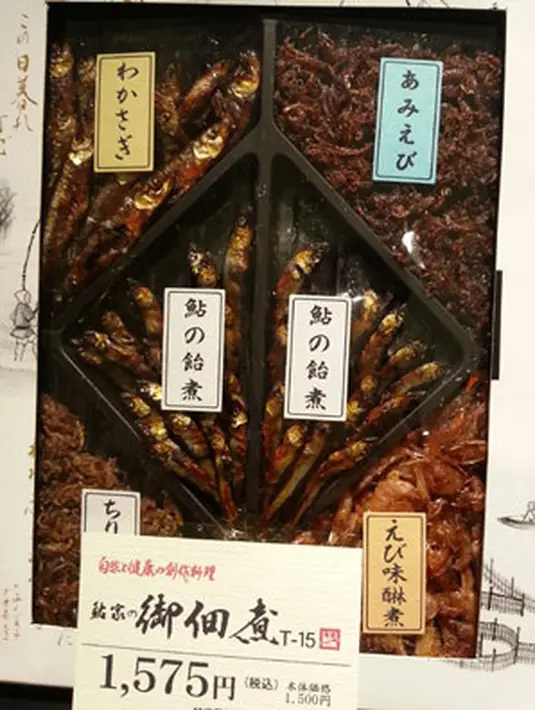 この日暮れ
わかさぎ
あみえび
鮎の飴煮
鮎の飴煮
ちり
えび味醂煮
自然と健康の創作料理
鮎家の御佃煮T-15
1,575円(税込)
本体価格
1,500円